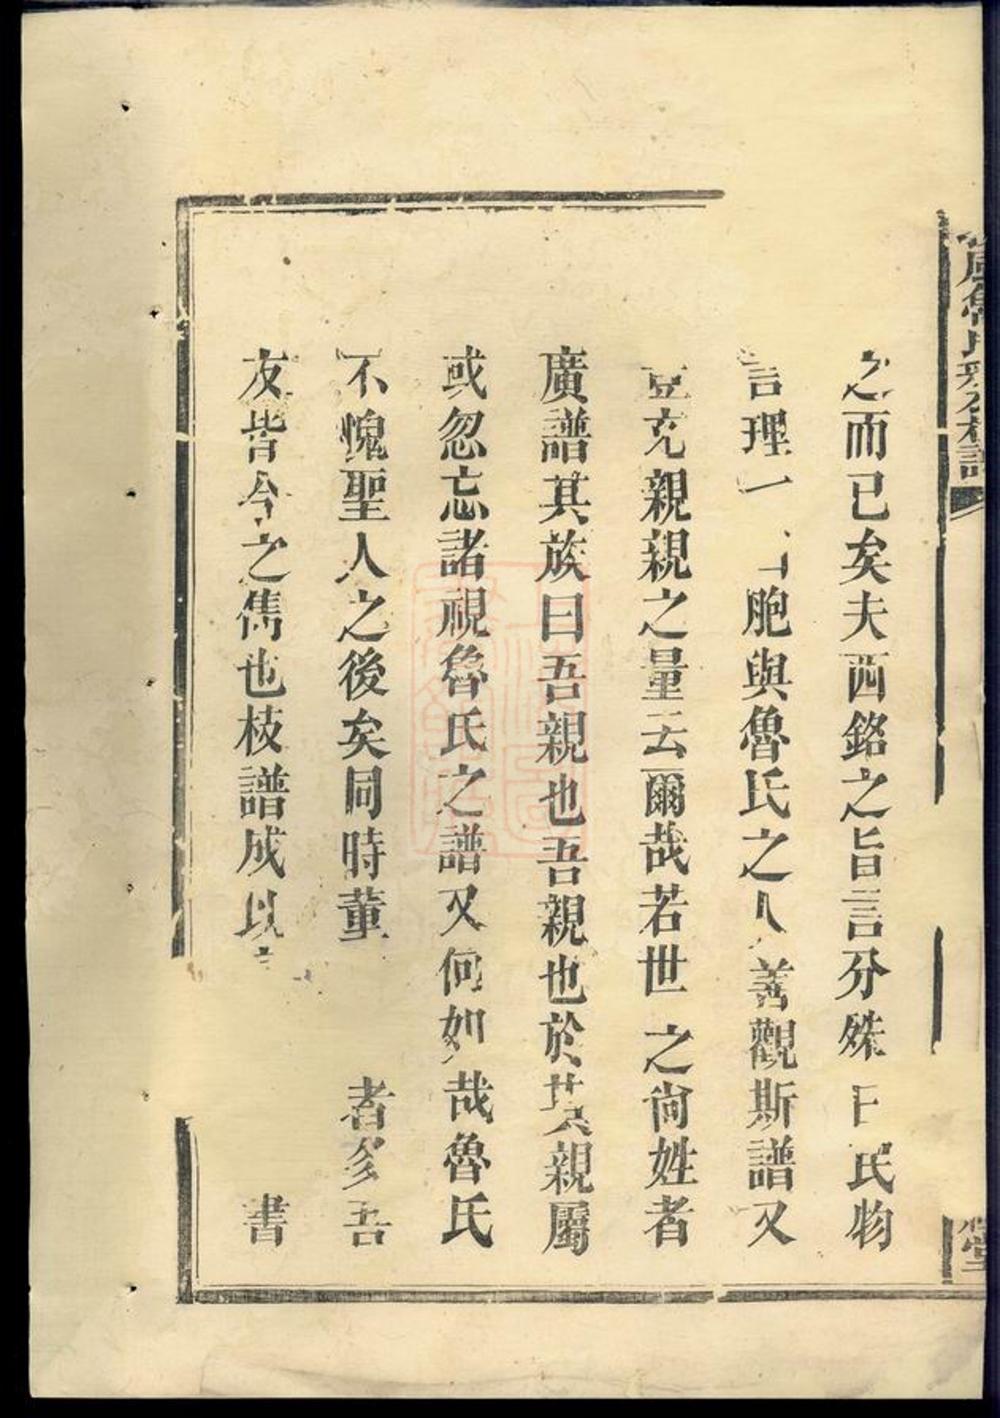 之而已矣夫西銘之旨言分殊曰民物
言理一胞與魯氏之人善觀斯譜又
豈充親親之量云爾哉若世之尚姓者
廣譜其族曰吾親也吾親也於其親屬
或忽忘諸視魯氏之譜又何如哉魯氏
不愧聖人之後矣同時董者多吾
友皆今之雋也枝譜成以書
風魯氏枝譜
堂